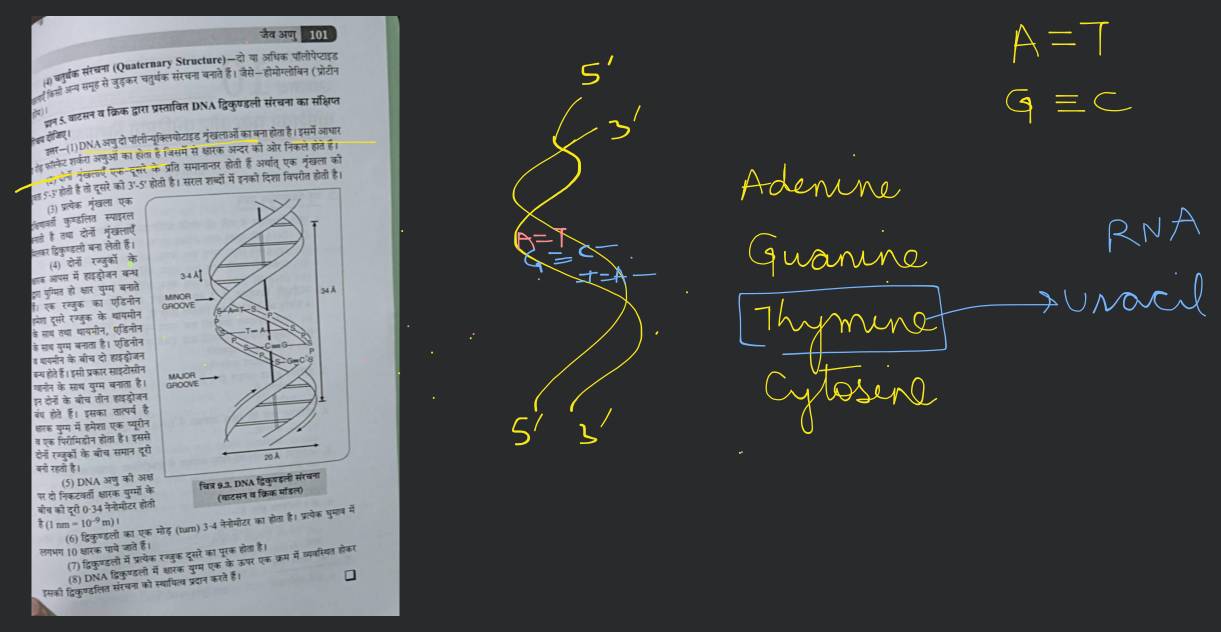 जैव अणु 101
(4) चतुर्थक संरचना (Quaternary Structure)—दो या अधिक पॉलीपेप्टाइड
किसी अन्य समूह से जुड़कर चतुर्थक संरचना बनाते हैं। जैसे—होमोग्लोबिन (प्रोटीन
प्रश्न 5. वाटसन व क्रिक द्वारा प्रस्तावित DNA द्विकुण्डली संरचना का संक्षिप्त
दीजिए।
उत्तर—(1) DNA अणु दो पॉलीन्यूक्लियोटाइड शृंखलाओं का बना होता है। इसमें आधार
फॉस्फेट शर्करा अणुओं का होता है जिसमें से क्षारक अन्दर की ओर निकले होते हैं।
(2) दोनों शृंखलाएँ एक-दूसरे के प्रति समानान्तर होती हैं अर्थात् एक शृंखला की
5'-3' होती है तो दूसरे की 3'-5' होती है। सरल शब्दों में इनकी दिशा विपरीत होती है।
(3) प्रत्येक शृंखला एक
कुण्डलित स्पाइरल
है तथा दोनों शृंखलाएँ
द्विकुण्डली बना लेती हैं।
(4) दोनों रज्जुकों के
आपस में हाइड्रोजन बन्ध
युग्मित हो क्षार युग्म बनाते
हैं। एक रज्जुक का एडिनीन
हमेशा दूसरे रज्जुक के थायमीन
के साथ तथा थायमीन, एडिनीन
के साथ युग्म बनाता है। एडिनीन
व थायमीन के बीच दो हाइड्रोजन
बन्ध होते हैं। इसी प्रकार साइटोसीन
ग्वानीन के साथ युग्म बनाता है।
इन दोनों के बीच तीन हाइड्रोजन
बंध होते हैं। इसका तात्पर्य है
क्षारक युग्म में हमेशा एक प्यूरीन
व एक पिरीमिडीन होता है। इससे
दोनों रज्जुकों के बीच समान दूरी
बनी रहती है।
(5) DNA अणु की अक्ष
पर दो निकटवर्ती क्षारक युग्मों के
बीच की दूरी 0·34 नैनोमीटर होती
है (1 nm = 10⁻⁹ m)।
3·4 Å
MINOR
GROOVE
34 Å
S—A=T—S
S—T=A—S
S—C≡G—S
S—G≡C—S
MAJOR
GROOVE
20 Å
चित्र 9.3. DNA द्विकुण्डली संरचना
(वाटसन व क्रिक मॉडल)
(6) द्विकुण्डली का एक मोड़ (turn) 3·4 नैनोमीटर का होता है। प्रत्येक घुमाव में
लगभग 10 क्षारक पाये जाते हैं।
(7) द्विकुण्डली में प्रत्येक रज्जुक दूसरे का पूरक होता है।
(8) DNA द्विकुण्डली में क्षारक युग्म एक के ऊपर एक क्रम में व्यवस्थित होकर
इसकी द्विकुण्डलित संरचना को स्थायित्व प्रदान करते हैं।
5'
3'
A=T
G≡C
T=A
5' 3'
A=T
G≡C
Adenine
Guanine
Thymine
Cytosine
RNA
Uracil